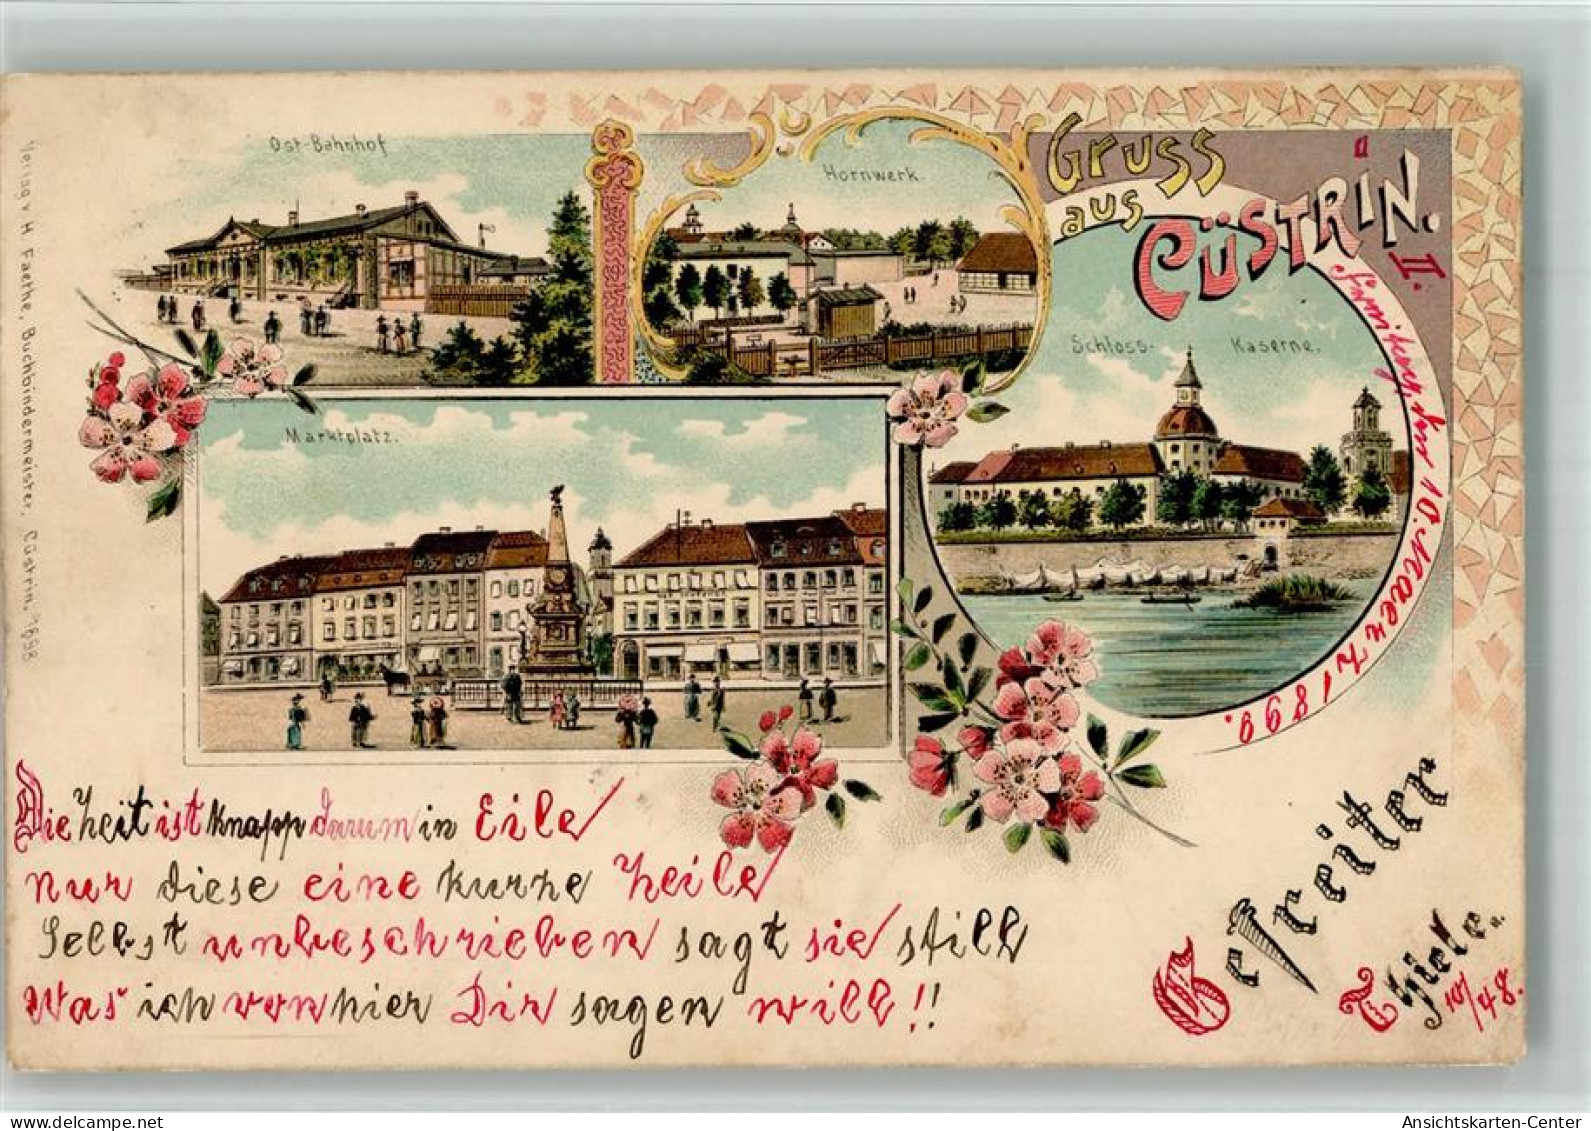 Ost-Bahnhof
Hornwerk.
Gruss
aus
Cüstrin.
II.
Schloss-Kaserne.
Marktplatz.
Verlag v. H. Faethe, Buchbindermeister, Cüstrin, 1898
den 10. Maerz 1899.
Die Zeit ist knapp darum in Eile
nur diese eine kurze Zeile
Selbst unbeschrieben sagt sie still
Was ich von hier Dir sagen will!!
Gefreiter
Thiele.
10/48.
Ansichtskarten-Center